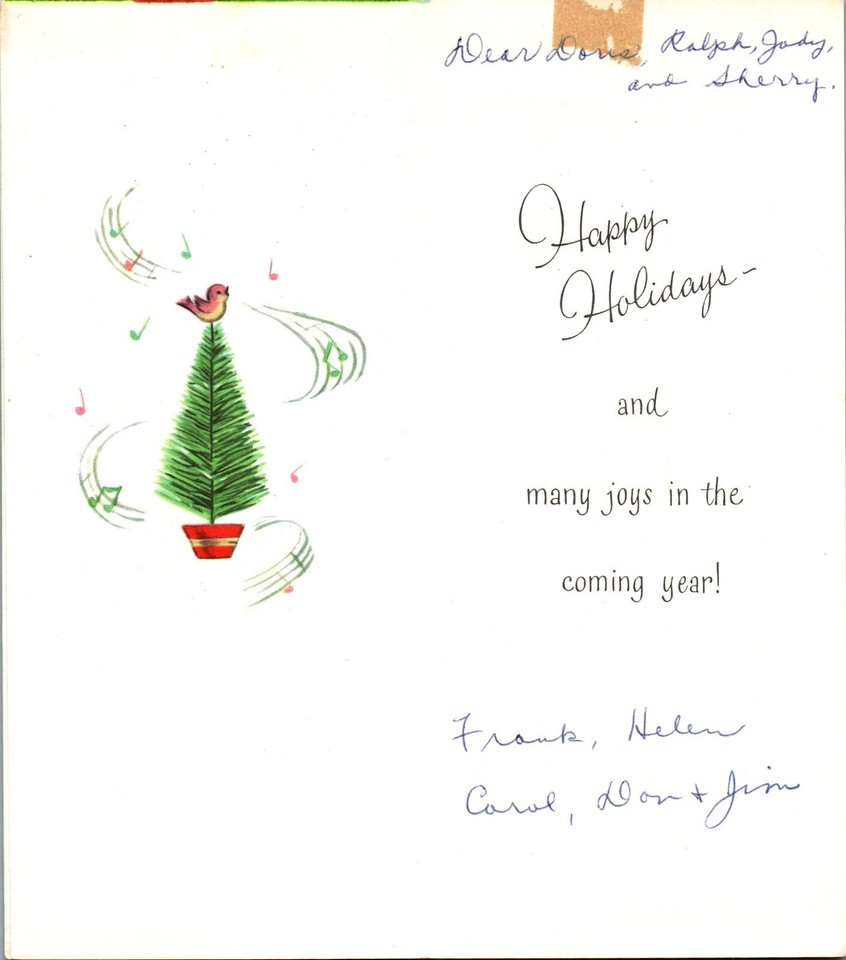 Dear Doris, Ralph, Judy,
and Sherry.
Happy
Holidays-
and
many joys in the
coming year!
Frank, Helen
Carol, Don + Jim